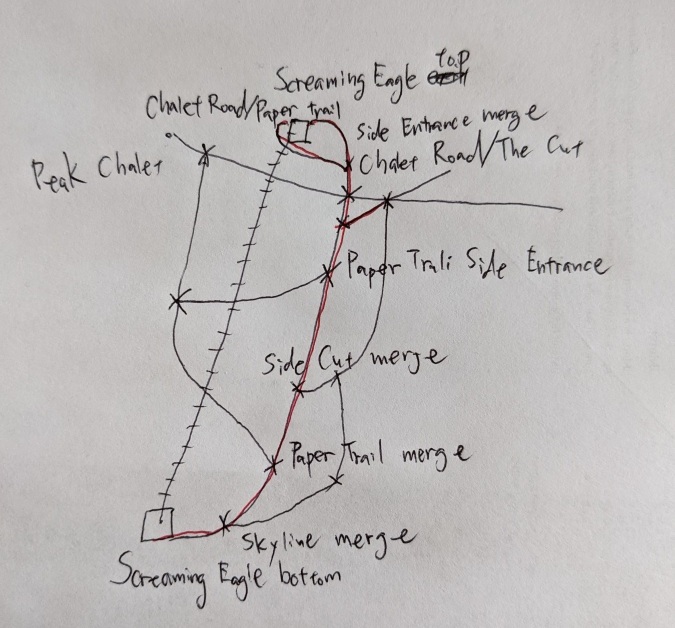 top
Screaming Eagle
Chalet Road/Paper trail
Side Entrance merge
Peak Chalet
Chalet Road/The Cut
Paper Trali Side Entrance
Side Cut merge
Paper Trail merge
Skyline merge
Screaming Eagle bottom